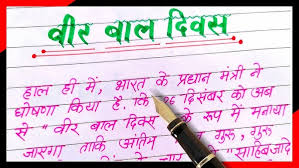 वीर बाल दिवस
हाल ही में, भारत के प्रधान मंत्री ने
घोषणा किया है, कि 26 दिसंबर को अब
से "वीर बाल दिवस के रूप में मनाया
जाएगा ताकि अंतिम गुरु, गुरु
के चार "साहिबजादे